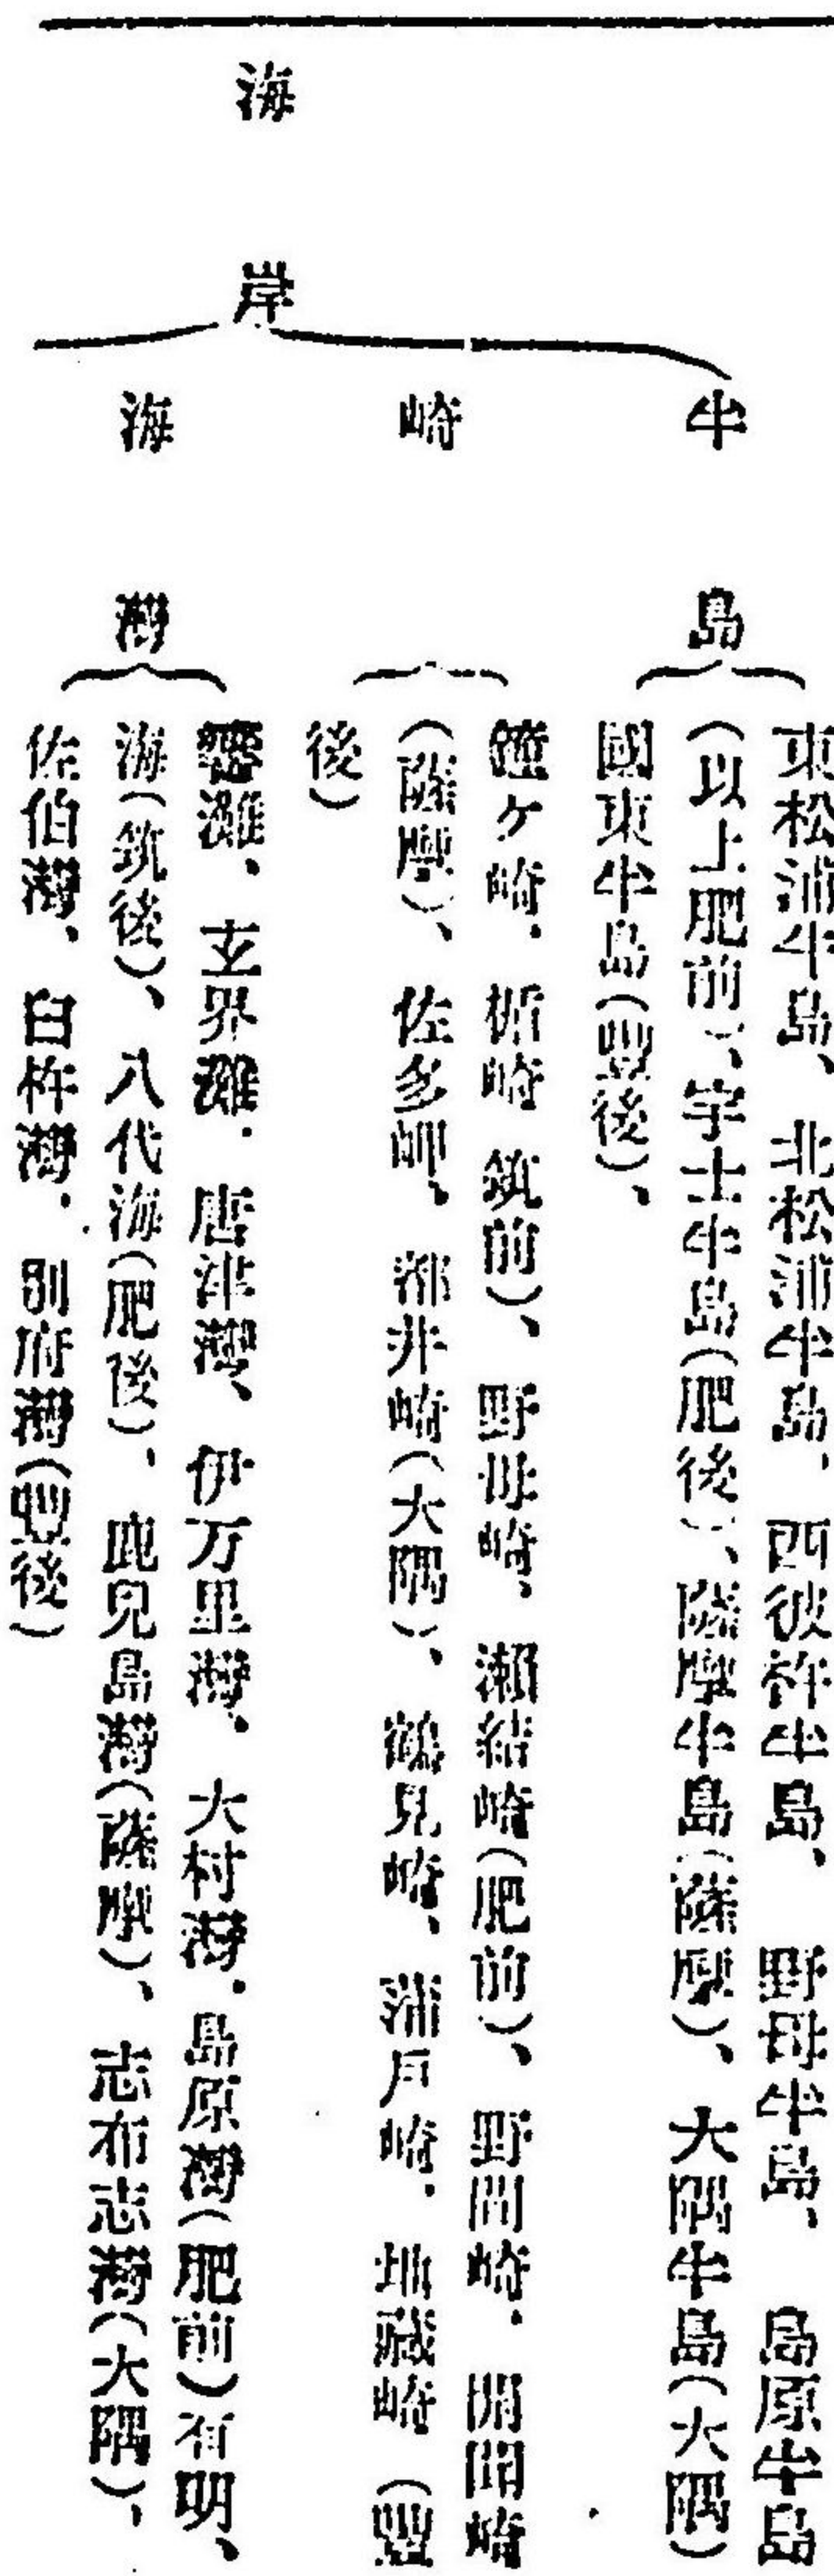 海岸
半島
東松浦半島、北松浦半島、西彼杵半島、野母半島、島原半島
(以上肥前)、宇土半島(肥後)、薩摩半島(薩摩)、大隅半島(大隅)
國東半島(豐後)、
崎
鐘ヶ崎、楯崎 筑前)、野母崎、瀨詰崎(肥前)、野間崎、開聞崎
(薩摩)、佐多岬、都井崎(大隅)、鶴見崎、蒲戶崎、地藏崎(豐
後)
海灣
響灘、玄界灘、唐津灣、伊万里灣、大村灣、島原灣(肥前)有明、
海(筑後)、八代海(肥後)、鹿兒島灣(薩摩)、志布志灣(大隅)、
佐伯灣、臼杵灣、別府灣(豐後)